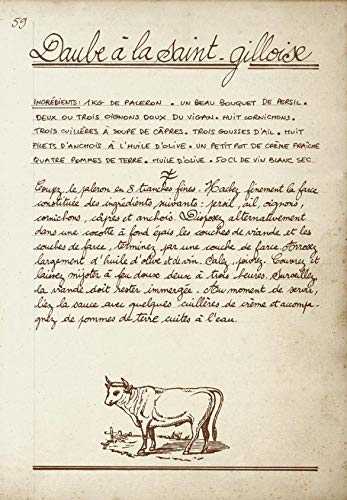 59
Daube à la Saint-gilloise
INGRÉDIENTS: 1KG DE PALERON. UN BEAU BOUQUET DE PERSIL.
DEUX OU TROIS OIGNONS DOUX DU VIGAN. HUIT CORNICHONS.
TROIS CUILLÈRES À SOUPE DE CÂPRES. TROIS GOUSSES D'AIL. HUIT
FILETS D'ANCHOIS À L'HUILE D'OLIVE. UN PETIT POT DE CRÈME FRAÎCHE
QUATRE POMMES DE TERRE. HUILE D'OLIVE. 50CL DE VIN BLANC SEC.
Coupez le paleron en 8 tranches fines. Hachez finement la farce
constituée des ingrédients suivants: persil, ail, oignons,
cornichons, câpres et anchois. Disposez alternativement
dans une cocotte à fond épais les couches de viande et les
couches de farce, terminez par une couche de farce. Arrosez
largement d'huile d'olive et de vin. Salez, poivrez. Couvrez et
laissez mijoter à feu doux deux à trois heures. Surveillez,
la viande doit rester immergée. Au moment de servir,
liez la sauce avec quelques cuillères de crème et accompa-
gnez de pommes de terre cuites à l'eau.